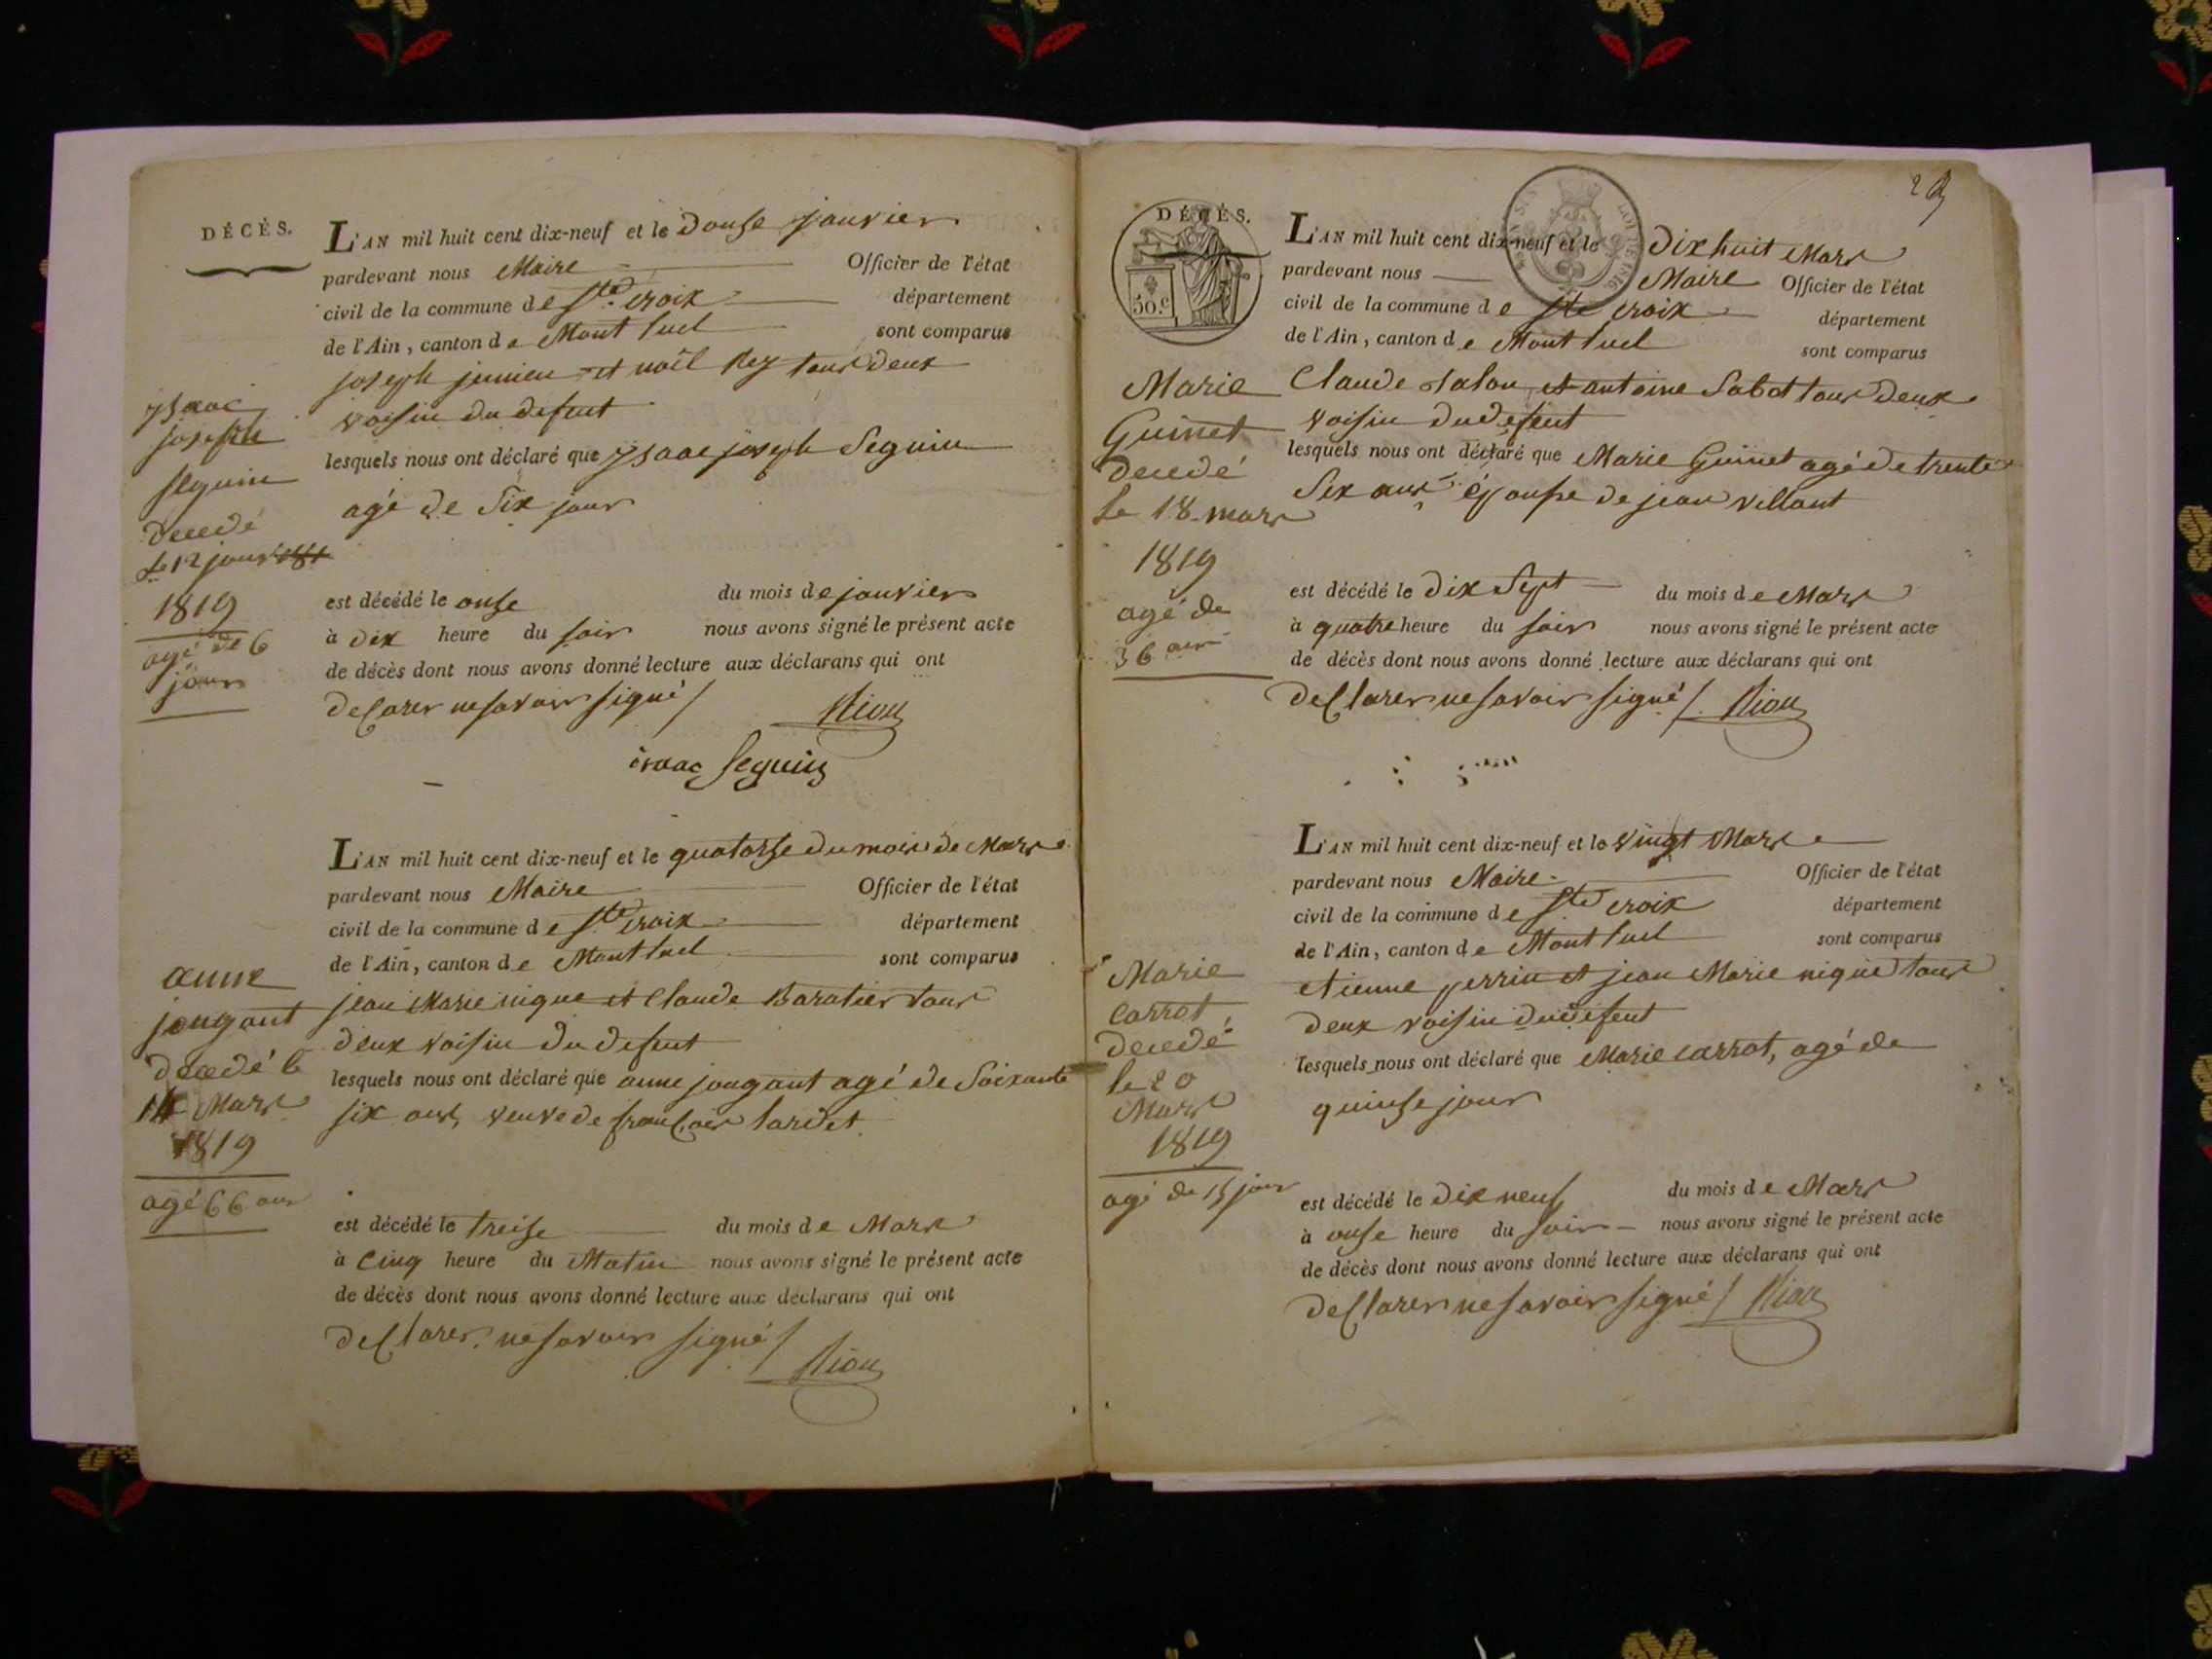 DÉCÈS.
L'AN mil huit cent dix-neuf et le douse janvier
pardevant nous Maire Officier de l'état
civil de la commune de Ste croix département
de l'Ain, canton de Mont luel sont comparus
joseph junieu et noël Rey tous deux
voisin du defeut
lesquels nous ont déclaré que ysaac joseph Seguin
agé de Six jour
est décédé le onse du mois de janvier
à dix heure du soir nous avons signé le présent acte
de décès dont nous avons donné lecture aux déclarans qui ont
declarer ne savoir signé / Riou
isaac Seguin
ysaac
joseph
seguin
decedé
Le 12 janv
1819
agé de 6
jours
L'AN mil huit cent dix-neuf et le quatorse du mois de Mars
pardevant nous Maire Officier de l'état
civil de la commune de Ste croix département
de l'Ain, canton de Mont luel sont comparus
jean Marie nique et Claude Baratier tous
deux voisin du defeut
lesquels nous ont déclaré que anne jougant agé de Soixante
six ans, veuve de françois lardet
est décédé le treise du mois de Mars
à Cinq heure du Matin nous avons signé le présent acte
de décès dont nous avons donné lecture aux déclarans qui ont
declarer ne savoir signé / Riou
anne
jougant
decedé le
14 Mars
1819
agé 66 ans
29
DÉCÈS.
50.c
L'AN mil huit cent dix-neuf et le dix huit Mars
pardevant nous Maire Officier de l'état
civil de la commune de Ste croix département
de l'Ain, canton de Mont luel sont comparus
Claude Salon et antoine Sabot tous deux
voisin du defeut
lesquels nous ont déclaré que Marie Guinet agé de trente
Six ans épouse de jean villant
est décédé le dix Sept du mois de Mars
à quatre heure du soir nous avons signé le présent acte
de décès dont nous avons donné lecture aux déclarans qui ont
declarer ne savoir signé /. Riou
Marie
Guinet
decedé
Le 18 mars
1819
agé de
36 ans
L'AN mil huit cent dix-neuf et le vingt Mars
pardevant nous Maire Officier de l'état
civil de la commune de Ste croix département
de l'Ain, canton de Mont luel sont comparus
etienne perrin et jean Marie nique tous
deux voisin du defeut
lesquels nous ont déclaré que Marie carrot, agé de
quinse jour
est décédé le dix neuf du mois de Mars
à onse heure du soir nous avons signé le présent acte
de décès dont nous avons donné lecture aux déclarans qui ont
declarer ne savoir signé / Riou
Marie
carrot,
decedé
le 20
Mars
1819
agé de 15 jour